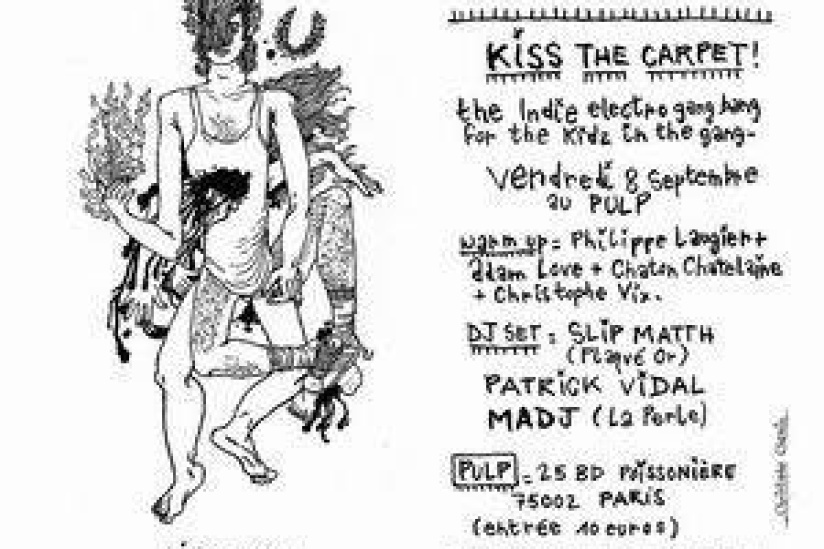 KISS THE CARPET!
the Indie electro gang bang
for the Kidz in the gang-
Vendredi 8 Septembre
au PULP
warm up = Philippe Laugier +
Adam Love + Chaton Chatelaine
+ Christophe Vix.
DJ SET = SLIP MATTH
(Plaqué Or)
PATRICK VIDAL
MADJ (La Perle)
PULP = 25 BD POISSONIÈRE
75002 PARIS
(entrée 10 euros)